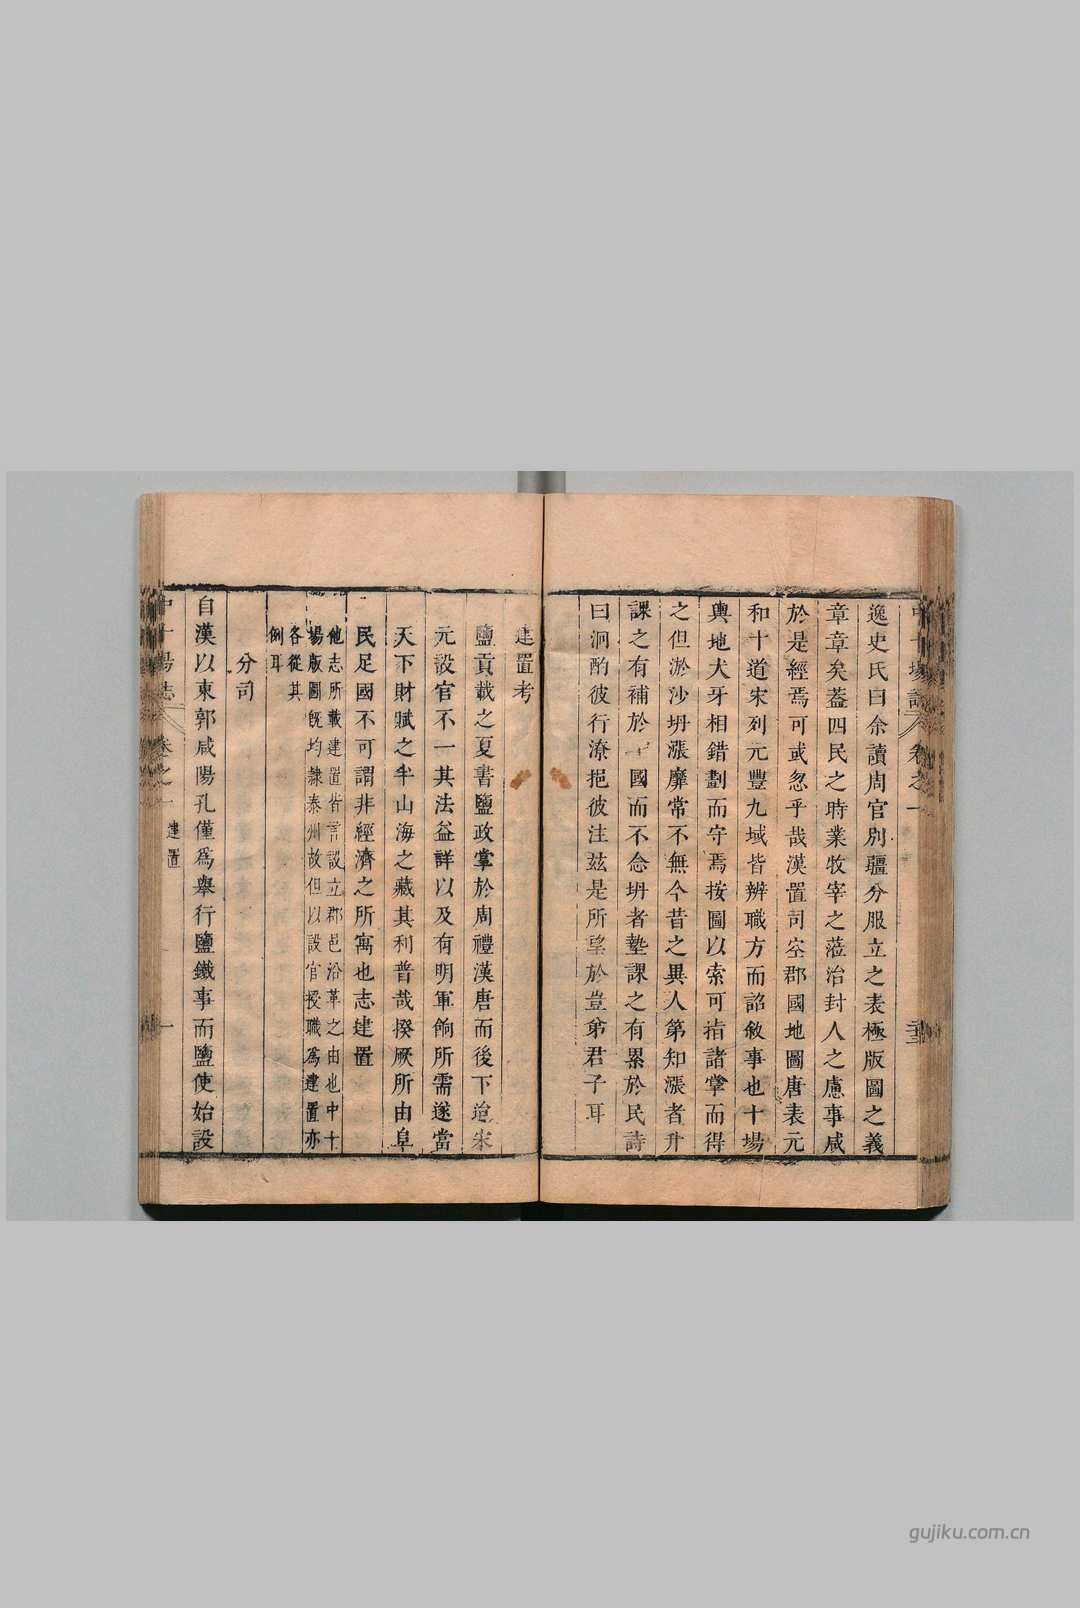 逸史氏曰余讀周官別疆分服立之表極版圖之義
章章矣蓋四民之時業牧宰之蒞治封人之慮事咸
於是經焉可或忽乎哉漢置司空郡國地圖唐表元
和十道宋列元豐九域皆辨職方而詔敘事也十場
輿地犬牙相錯劃而守焉按圖以索可指諸掌而得
之但淤沙坍漲靡常不無今昔之異人第知漲者升
課之有補於國而不念坍者墊課之有累於民詩
曰泂酌彼行潦挹彼注茲是所望於豈弟君子耳
中十場志 卷之一
建置考
鹽貢載之夏書鹽政掌於周禮漢唐而後下逮宋
元設官不一其法益詳以及有明軍餉所需遂當
天下財賦之半山海之藏其利普哉揆厥所由阜
民足國不可謂非經濟之所寓也志建置
他志所載建置皆言設立郡邑沿革之由也中十
場版圖既均隸泰州故但以設官授職為建置亦
各從其
例耳
分司
自漢以東郭咸陽孔僅為舉行鹽鐵事而鹽使始設
中十場志 卷之一 建置 一
gujiku.com.cn